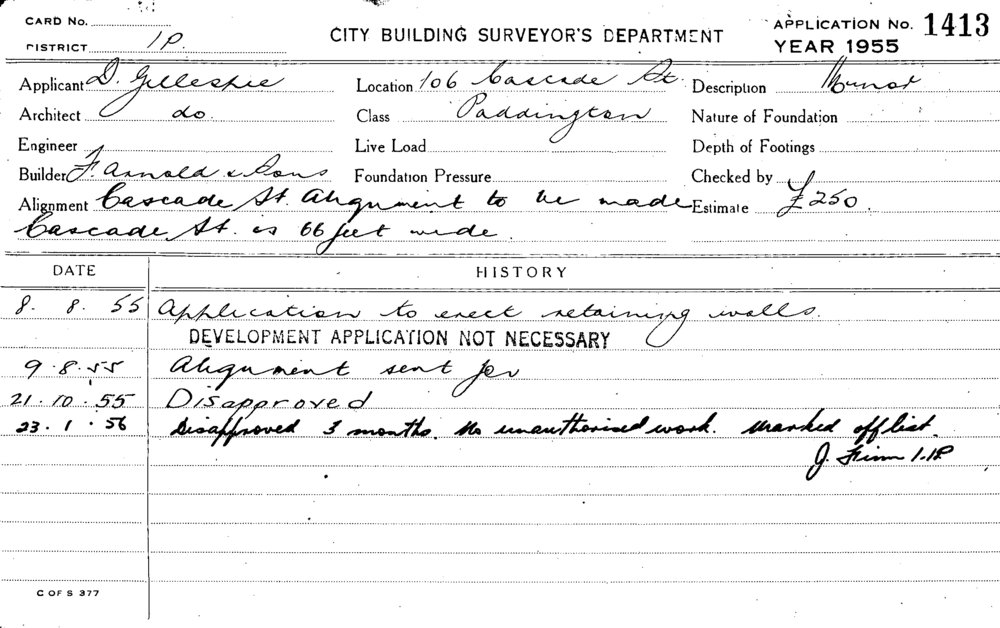 CARD No.
DISTRICT 1P.
CITY BUILDING SURVEYOR'S DEPARTMENT
APPLICATION No. 1413
YEAR 1955
Applicant D. Gillespie Location 106 Cascade St. Description Minor
Architect do. Class Paddington Nature of Foundation
Engineer Live Load Depth of Footings
Builder F. Arnold & Sons Foundation Pressure Checked by
Alignment Cascade St. Alignment to be made Estimate £250.
Cascade St. is 66 feet wide.
DATE HISTORY
8. 8. 55 Application to erect retaining walls.
DEVELOPMENT APPLICATION NOT NECESSARY
9.8.55 Alignment sent for
21.10.55 Disapproved
23.1.56 Disapproved 3 months. No unauthorised work. Marked off list.
J. Finn 1.P
C OF S 377